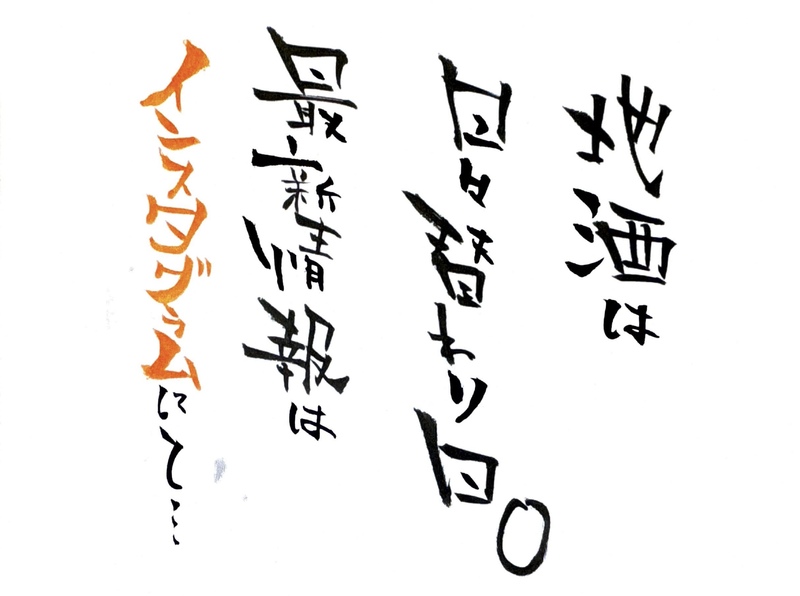 地酒は
日々替わり日。
最新情報は
インスタグラムにて…